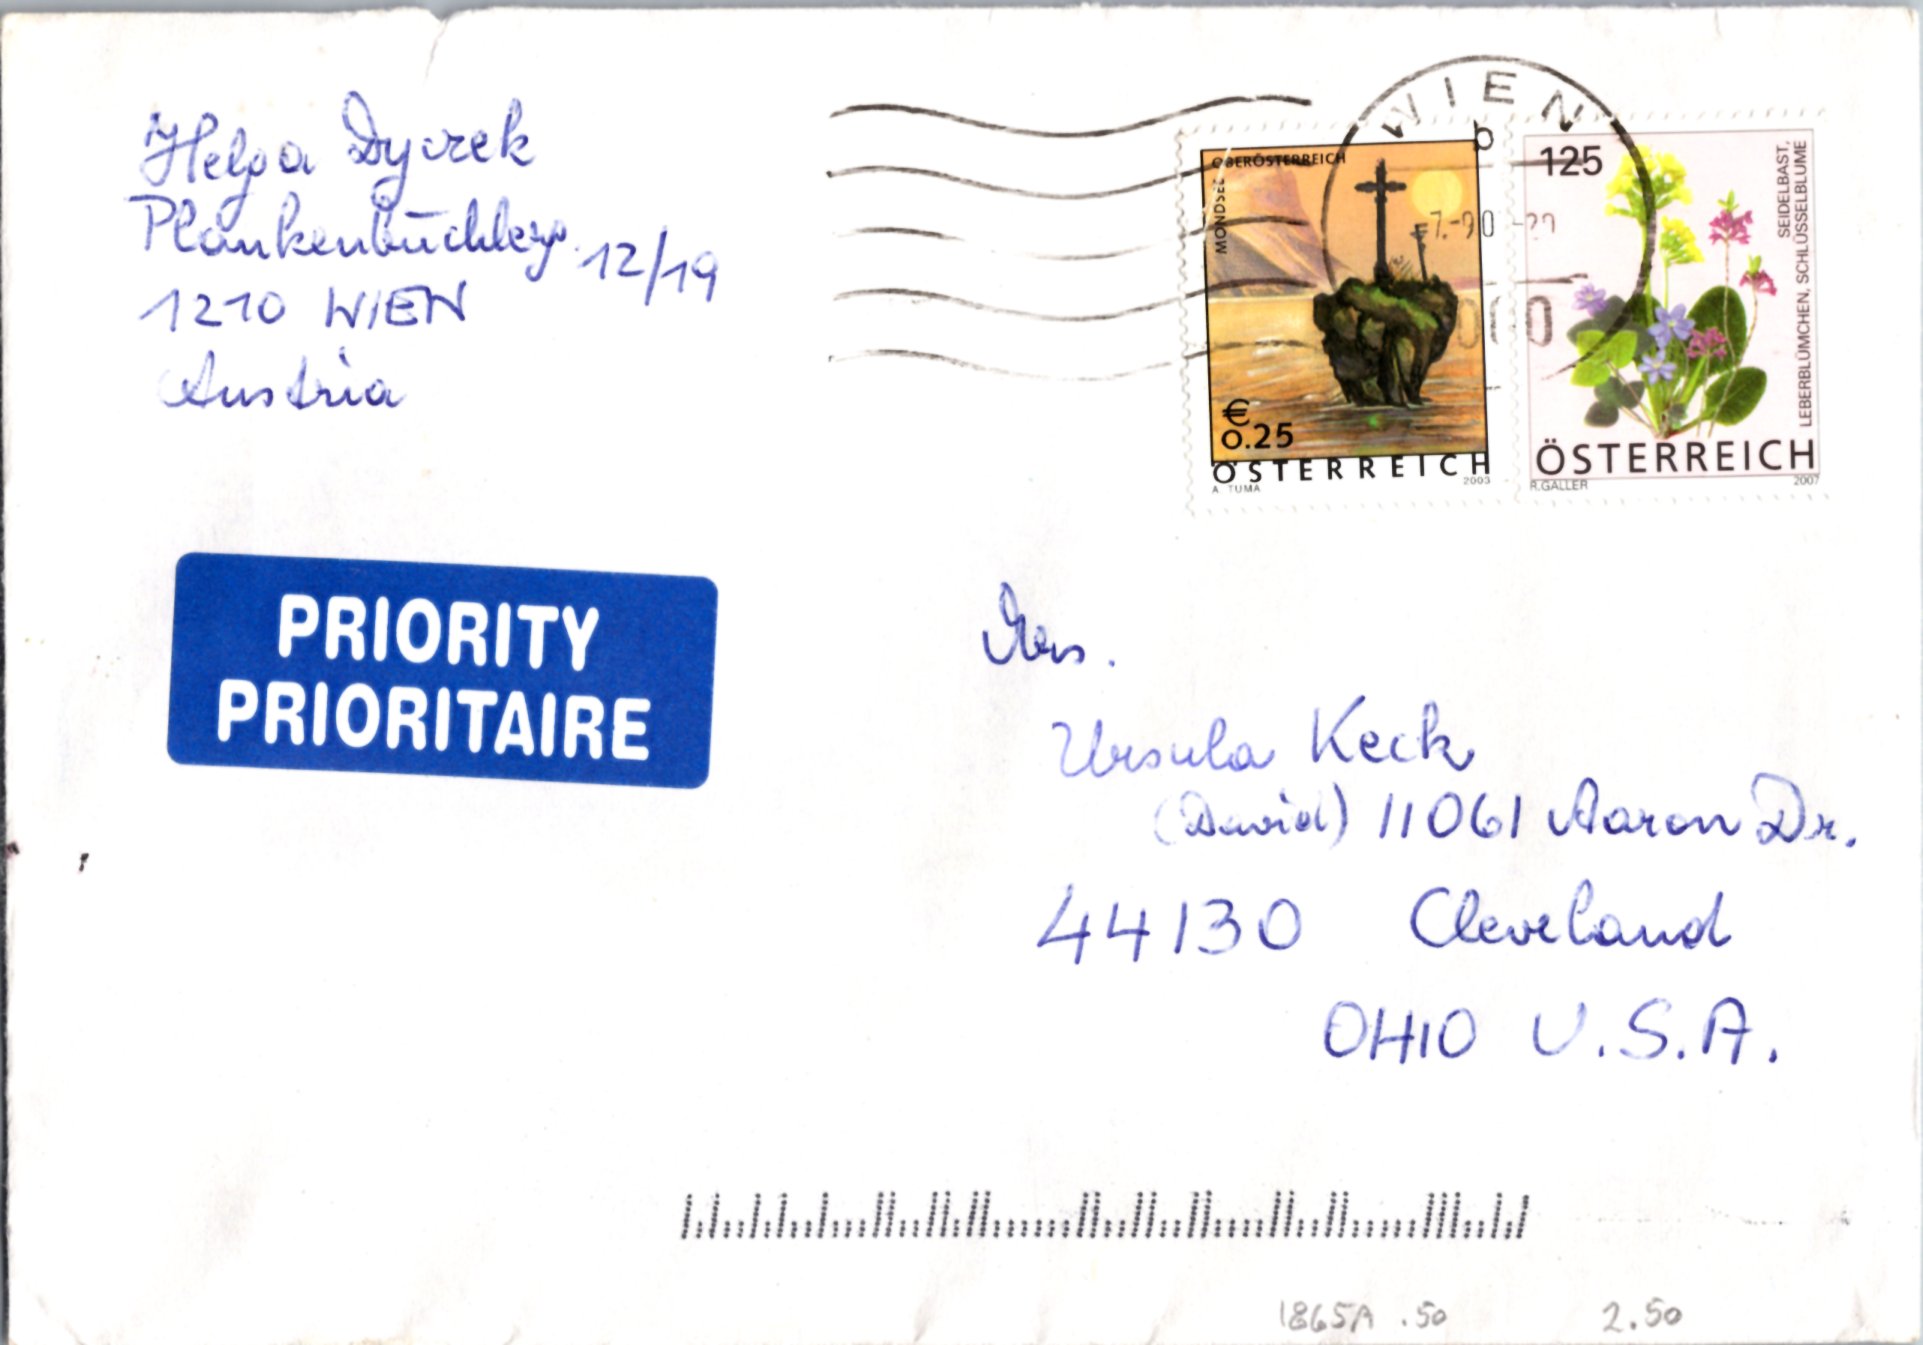 Helga Dycrek
Plankenbüchlerg. 12/19
1210 WIEN
Austria
WIEN
b
7.-9.0 -22
OBERÖSTERREICH
MONDSEE
€
0.25
ÖSTERREICH
A. TUMA 2003
125
SEIDELBAST,
LEBERBLÜMCHEN, SCHLÜSSELBLUME
ÖSTERREICH
R.GALLER 2007
PRIORITY
PRIORITAIRE
Mrs.
Ursula Keck
(David) 11061 Aaron Dr.
44130 Cleveland
OHIO U.S.A.
1865A .50 2.50